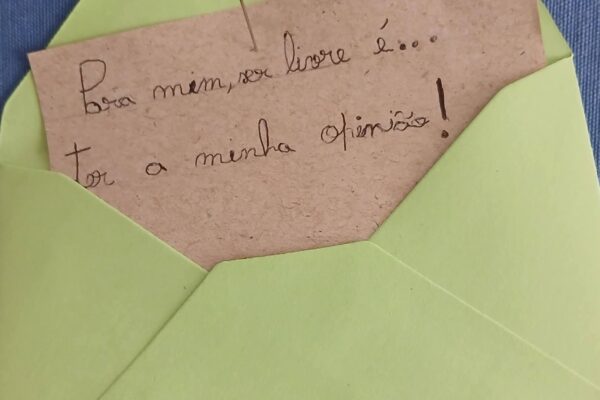 Para mim, ser livre é...
ter a minha opinião!